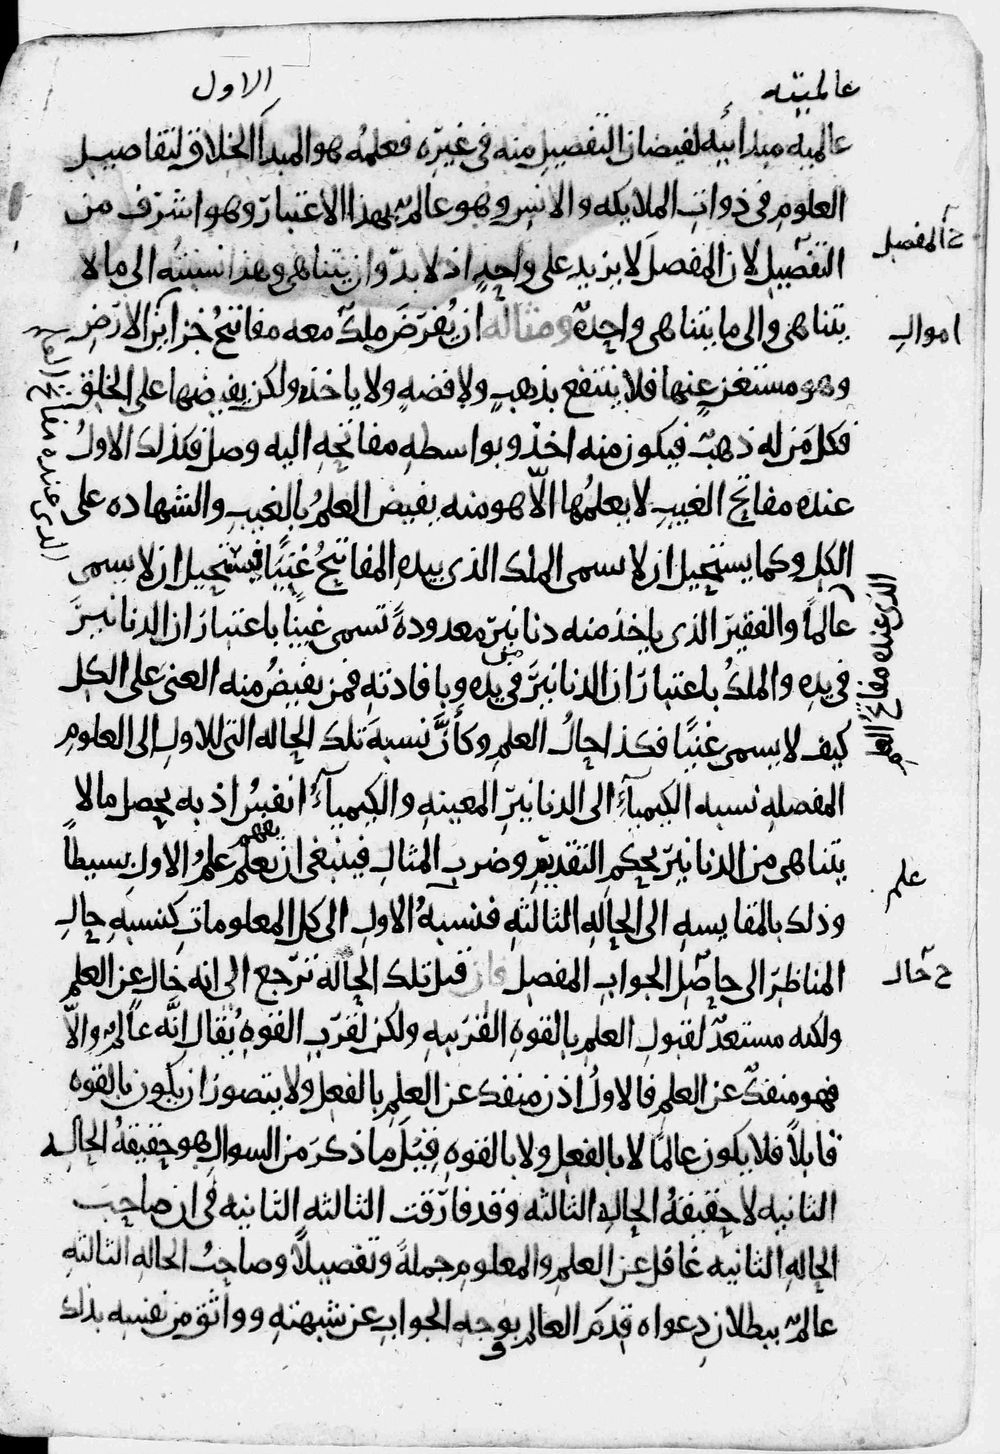 عالميته
الاول
عالميه مبدائيه لفيضان التفصيل منه في غيره فعلمه هو المبدأ الخلاق لتفاصيل
العلوم في ذوات الملايكه والانس وهو عالم بهذا الاعتبار وهو اشرف من
التفصيل لان المفصل لا يزيد على واحد اذ لا بد وان يتناهى وهذا نسبته الى ما لا
يتناهى والى ما يتناهى واحدة ومثاله ان يفرض ملك معه مفاتيح خزاين الارض
وهو مستغن عنها فلا ينتفع بذهب ولا فضه ولا ياخذه ولكن يفيضها على الخلق
فكل من له ذهب فيكون منه اخذ وبواسطه مفاتحه اليه وصل فكذلك الاول
عنده مفاتح الغيب لا يعلمها الا هو منه يفيض العلم بالغيب والشهاده على
الكل وكما يستحيل ان لا يسمى الملك الذي بيده المفاتيح غنيا فيستحيل ان لا يسمى
عالما والفقير الذي ياخذ منه دنانير معدودة تسمى غنيا باعتبار ان الدنانير
في يده والملك باعتبار ان الدنانير في يده وبافادته فمن يفيض منه الغنى على الكل
كيف لا يسمى غنيا فكذا حال العلم وكأن نسبة تلك الحاله التي للاول الى العلوم
المفصله نسبه الكيمياء الى الدنانير المعينه والكيمياء انفس اذ به يحصل ما لا
يتناهى من الدنانير بحكم التقدير وضرب المثال فينبغي ان يعلم علم الاول بسيطا
يفهم
وذلك بالمقايسه الى الحاله الثالثه فنسبة الاول الى كل المعلومات كنسبه حال
المناظر الى حاصل الجواب المفصل فان قيل تلك الحاله ترجع الى انه خال عن العلم
ولكنه مستعد لقبول العلم بالقوه القريبه ولكن لقرب القوه يقال انه عالم والا
فهو منفك عن العلم فالاول اذن منفك عن العلم بالفعل ولا يتصور ان يكون بالقوه
قابلا فلا يكون عالما لا بالفعل ولا بالقوه قيل ما ذكر من السوال هو حقيقة الحاله
الثانيه لا حقيقة الحاله الثالثه وقد فارقت الثالثه الثانيه في ان صاحب
الحاله الثانيه غافل عن العلم والمعلوم جملة وتفصيلا وصاحب الحاله الثالثه
عالم ببطلان دعواه قدم العالم بوجه الجواب عن شبهته وواثق من نفسه بذلك
خ المفصل
اموال
الذي عنده مفاتح العلم
علم
خ خال
الذي عنده مفاتح العلم